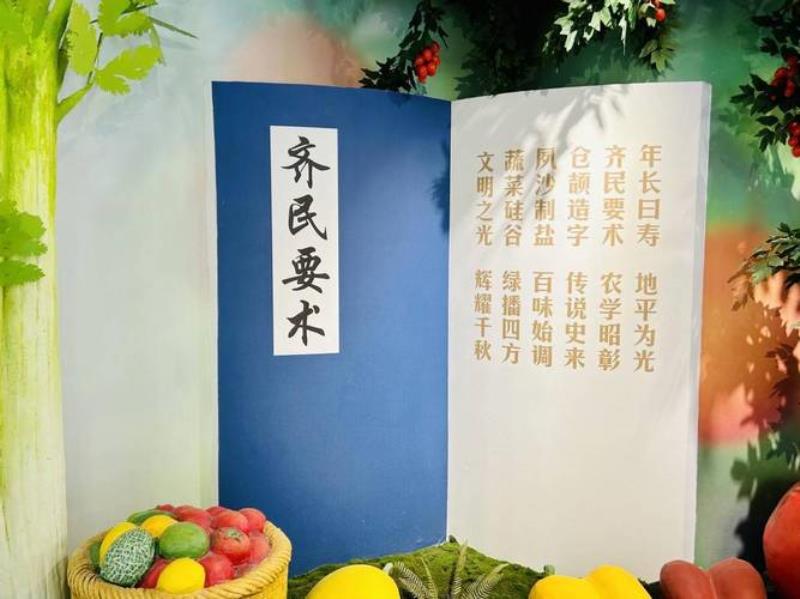 齐民要术
年长曰寿 地平为光
齐民要术 农学昭彰
仓颉造字 传说史来
夙沙制盐 百味始调
蔬菜硅谷 绿播四方
文明之光 辉耀千秋